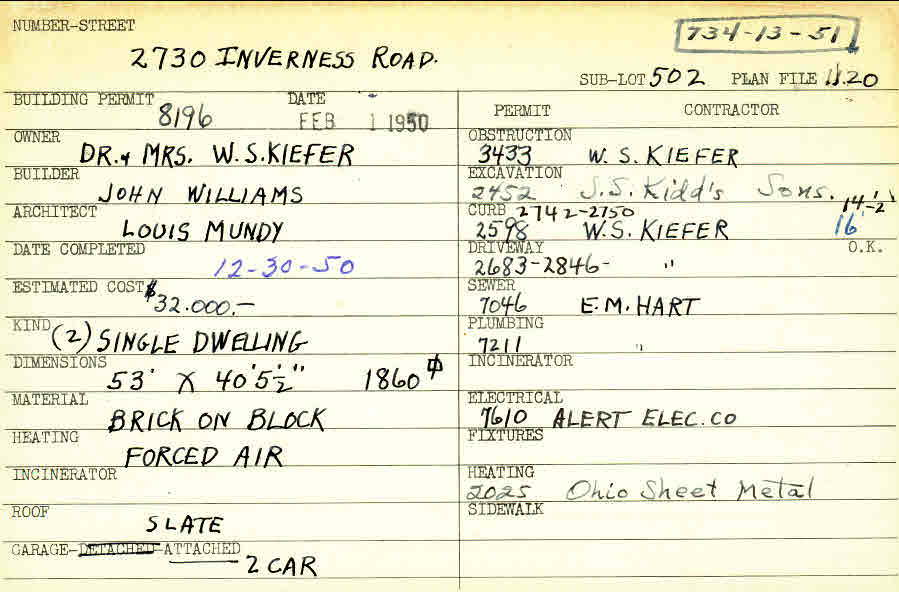 NUMBER-STREET
734-13-51
2730 INVERNESS ROAD.
SUB-LOT 502 PLAN FILE 11.20
BUILDING PERMIT 8196 DATE FEB 1 1950
OWNER DR. & MRS. W.S. KIEFER
BUILDER JOHN WILLIAMS
ARCHITECT LOUIS MUNDY
DATE COMPLETED 12-30-50
ESTIMATED COST $32.000.—
KIND (2) SINGLE DWELLING
DIMENSIONS 53' X 40'5½" 1860 ⌀
MATERIAL BRICK ON BLOCK
HEATING FORCED AIR
INCINERATOR
ROOF SLATE
GARAGE-DETACHED-ATTACHED 2 CAR
PERMIT CONTRACTOR
OBSTRUCTION
3433 W. S. KIEFER
EXCAVATION
2452 S.S. Kidd's Sons.
CURB 2742-2750 14'-2'
2598 W.S. KIEFER 16'
DRIVEWAY O.K.
2683-2846- "
SEWER
7046 E.M. HART
PLUMBING
7211 "
INCINERATOR
ELECTRICAL
7610 ALERT ELEC. CO
FIXTURES
HEATING
2025 Ohio Sheet Metal
SIDEWALK